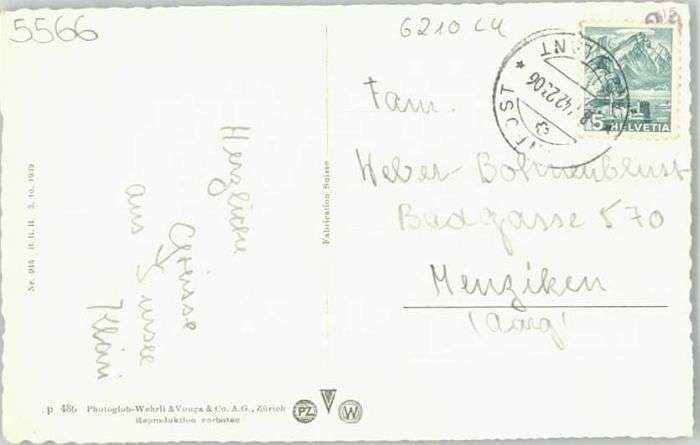 5566
6210 LU
Fam.
Weber-Bohnenblust
Badgasse 570
Menziken
(Aarg)
Herzliche
Grüsse
aus Sursee
Kläri
Fabrication Suisse
Nr. 916 H.R.H. 3. 10. 1939
p 486 Photoglob-Wehrli & Vouga & Co. A.G., Zürich
Reproduktion verboten
PZ
W
5 HELVETIA